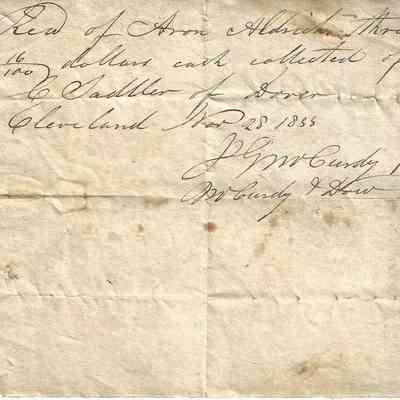 Recd of Aron Aldrich thre
16/100 dollars cash collected of
C Sadtler of Dover
Cleveland Nov 28 1855
J G McCurdy
McCurdy & Dow